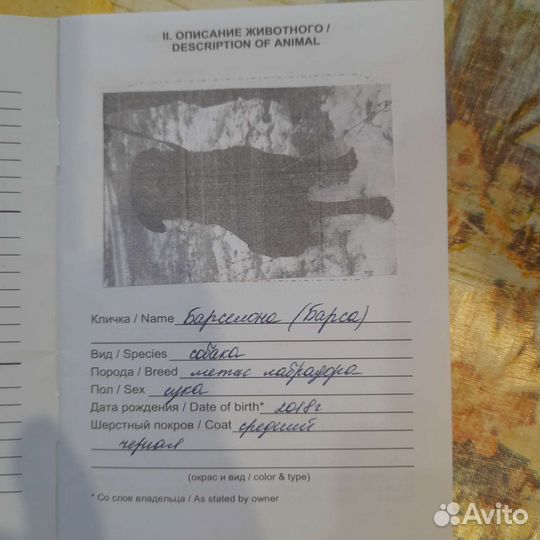 II. ОПИСАНИЕ ЖИВОТНОГО /
DESCRIPTION OF ANIMAL
Кличка / Name Барселона (Барса)
Вид / Species собака
Порода / Breed метис лабрадора
Пол / Sex сука
Дата рождения / Date of birth* 2018г
Шерстный покров / Coat средний
черная
(окрас и вид / color & type)
* Со слов владельца / As stated by owner
Avito